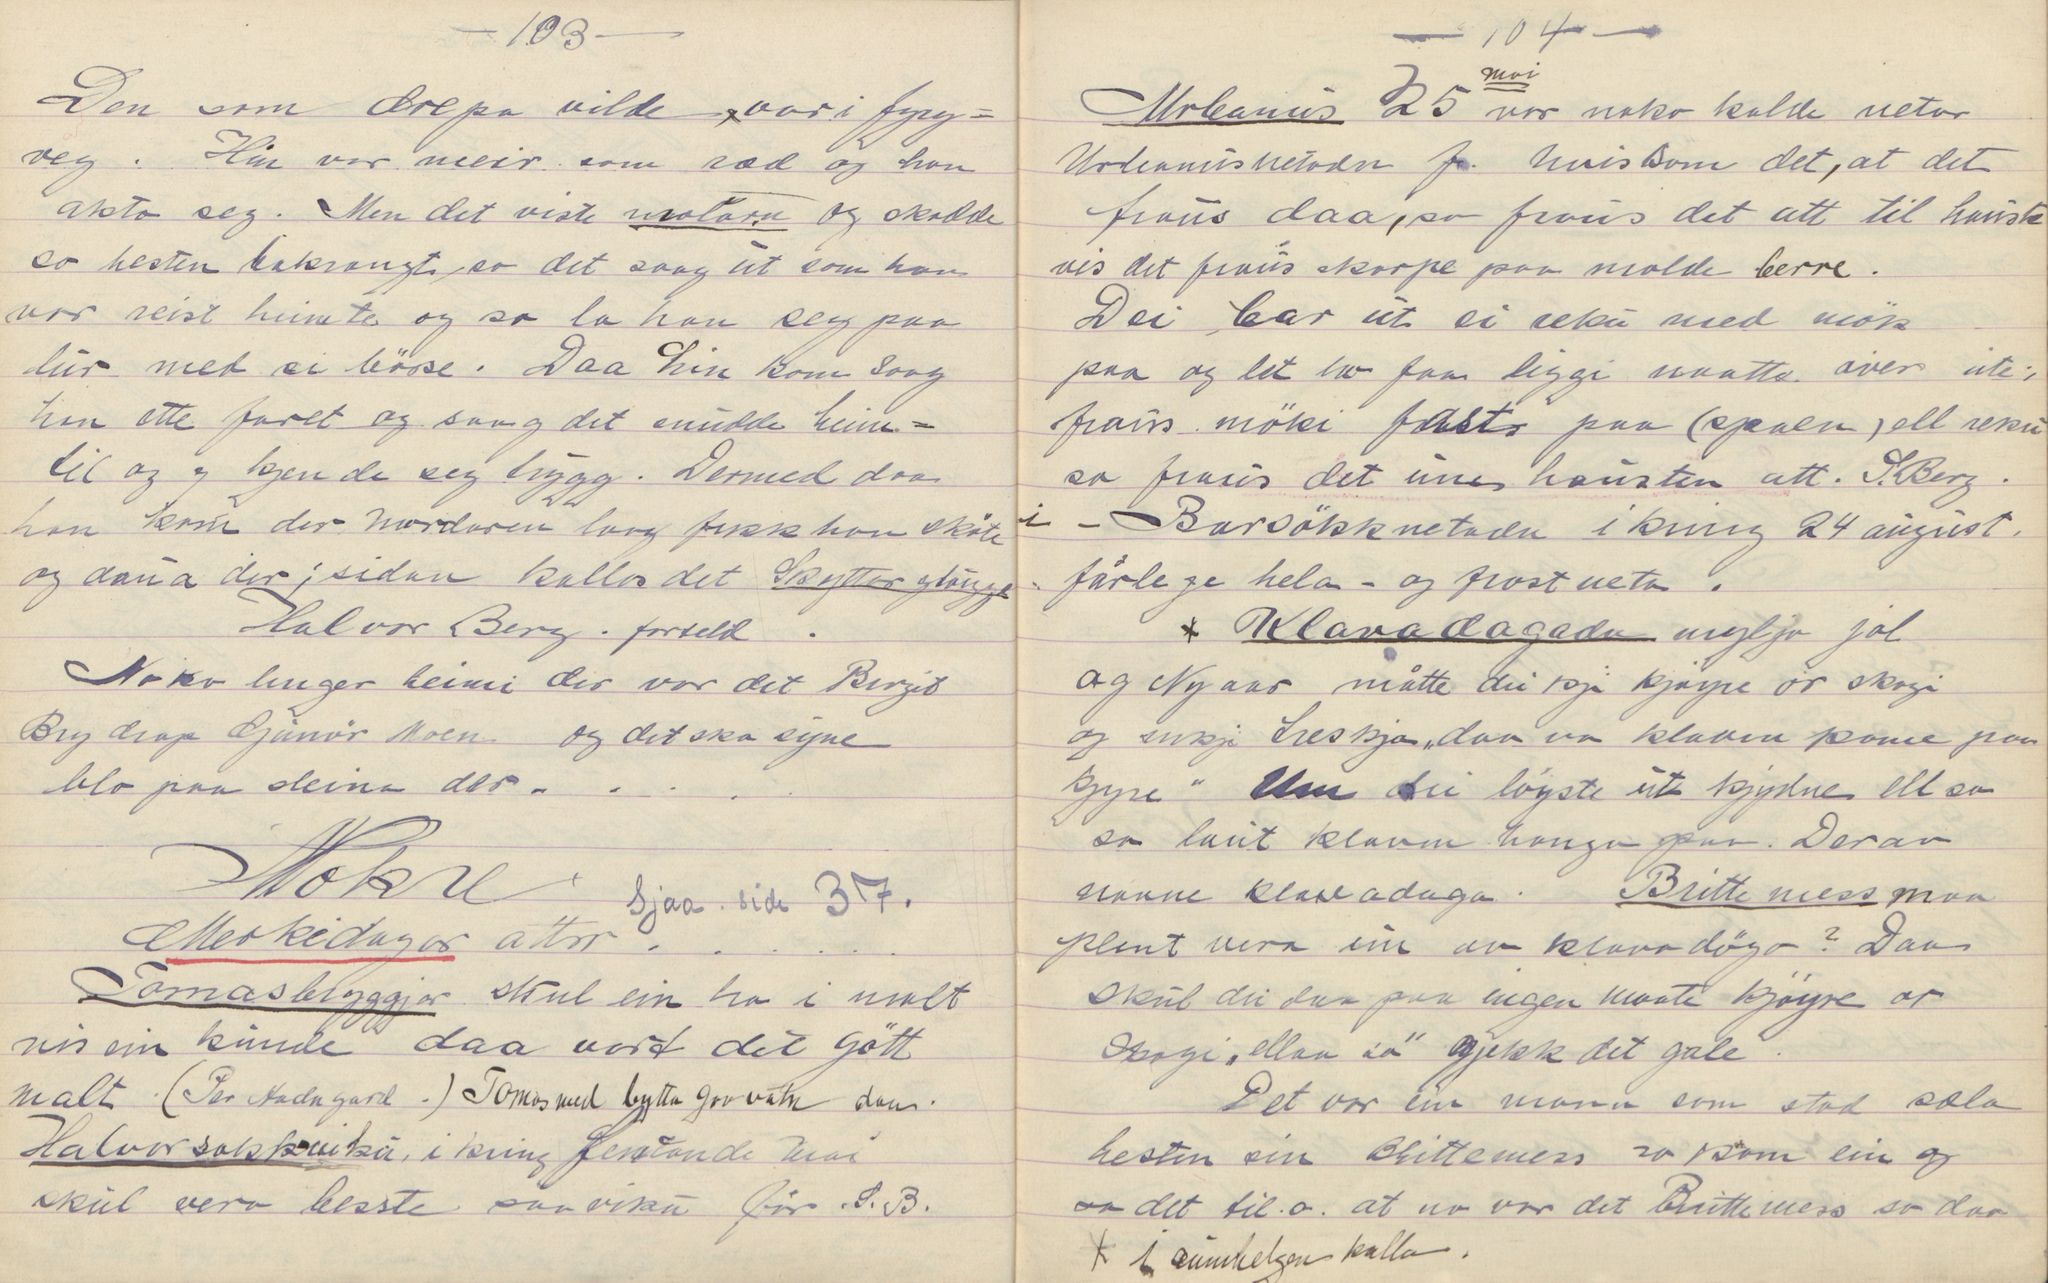 — 103 —
Den som drepa vilde var i fyre=
veg. Hin var meir som ræd og han
akta seg. Men det viste motarn og skodde
so hesten bakrangt, so det saag ut som han
var reist heimte og so la han seg paa
lur med ei børse. Daa hin kom saag
han ette faret og saag det snudde heim=
til og kjende seg trygg. Dermed daa
han kom der mordaren laag fekk han skøte
og daua der; sidan kallas det Skyttarglaugge
Halvor Berg. forteld.
Noko lenger heimi der var det Birgit
Bry drap Gunnar Moen og det ska syne
blo paa steina der. . . . .
Nokre
Sjaa side 37.
Merkidagar attr . . . . .
Tomasbryggjar skul ein ha i malt
vis ein kunde daa vart det gött
malt (Per Aadagard.) Tomas med bytta gav vatn daa.
Halvorsokkviku, i kring femtande mai
skul vera beste saaviku før. S.B.
— 104 —
Urbanus 25 mai var noko kalde netar
Urbanusnetadn f. hvis som det, at det
fraus daa, so fraus det att til haust
vis det fraus skorpe paa molde berre.
Dei bar ut ei reku med mök
paa og let ho faa liggi naatta over ute;
fraus möki fast paa (spaen) ell reku
so fraus det une hausten att. S. Berg.
i - Barsökknetadn i kring 24 august.
fårlege hela- og frostneta.
* Klavadagadn mylja jol
og Nyaar måtte dei kji kjöyre or skogi
og inkji treskja, „daa va klaven kome paa
kjyre" Um dei löyste ut kjydne ell so
so laut klaven hanga paa. Derav
navne klavadaga. Brittemess maa
plent vera ein av klavadögo? Daa
skul dei daa paa ingen maate kjöyre or
skogi, „ellaa so" gjekk det gale.
Det var ein mann som stod sæla
hesten sin Brittemess so kom ein og
sa det til. o. at no var det Brittemess so daa
* i rumhelgen kalla.